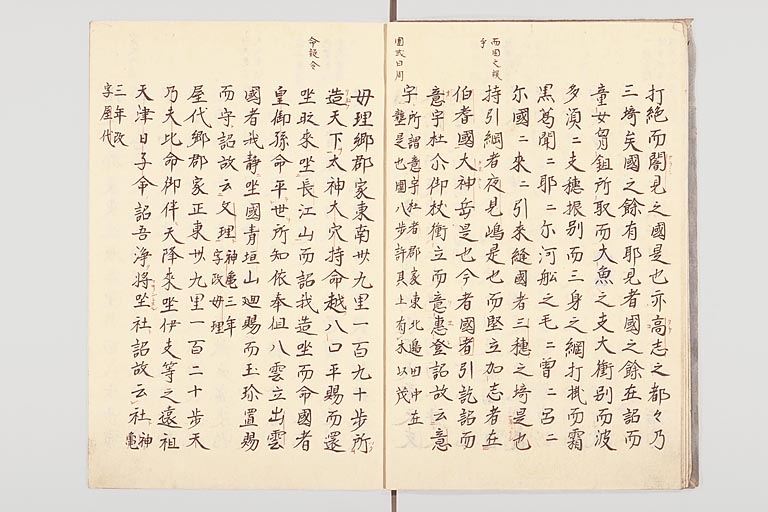 打絶而閇見之國是也亦高志之都々乃
三埼矣國之餘有耶見者國之餘在詔而
童女胷鉏所取而大魚之支大衝別而波
多湏二支穗振别而三身之綱打掛而霜
黒葛聞二耶二尓河舩之毛二曽二呂二
尓國二来二引来縫國者三穗之埼是也
持引綱者夜見嶋是也而堅立加志者在
伯耆國大神岳是也今者國者引訖詔而
意宇杜尓御杖衝立而意恵登詔故云意
宇 所謂意宇杜者郡家東北邊田中在
壟是也圍八歩許其上有木以茂
母理郷郡家東南卅九里一百九十歩所
造天下大神大穴持命越八口平賜而還
坐時来坐長江山而詔我造坐而命國者
皇御孫命平世所知依奉但八雲立出雲
國者我静坐國青垣山廻賜而玉珍置賜
而守詔故云文理 神亀三年
字改母理
屋代郷郡家正東卅九里一百二十歩天
乃夫比命御伴天降来坐伊支等之遠祖
天津日子命詔吾浄将坐社詔故云社 神亀
三年改
字屋代